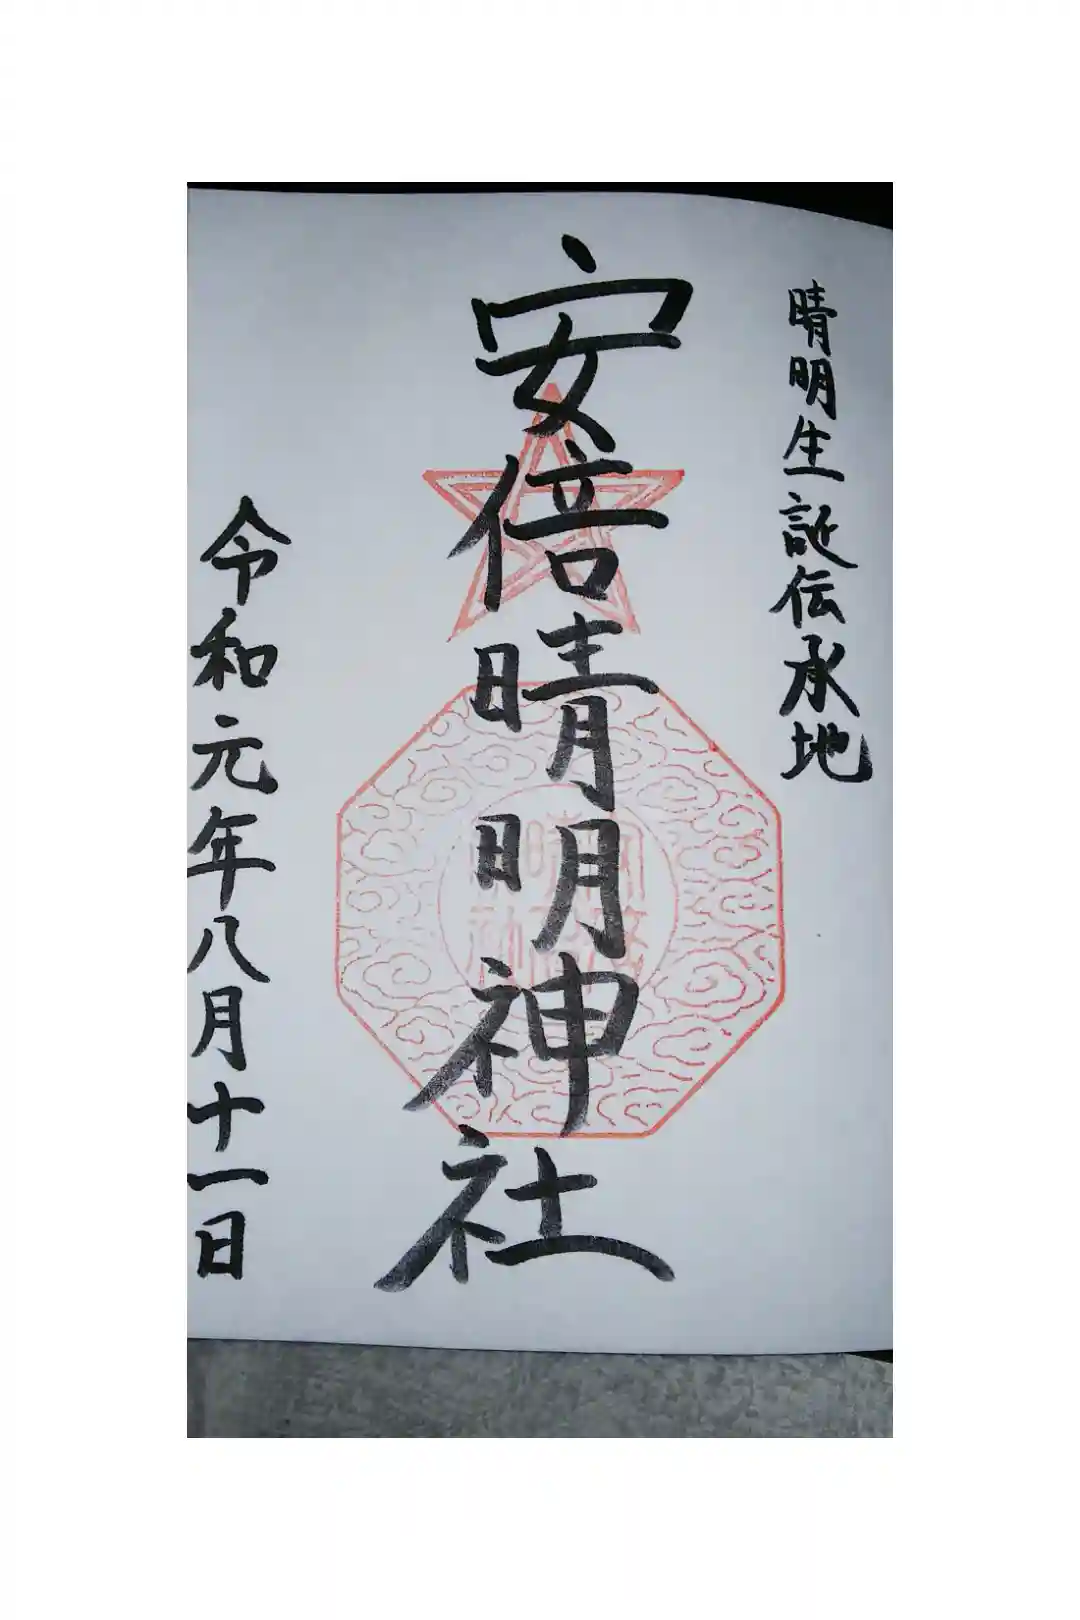 晴明生誕伝承地
安倍晴明神社
令和元年八月十一日